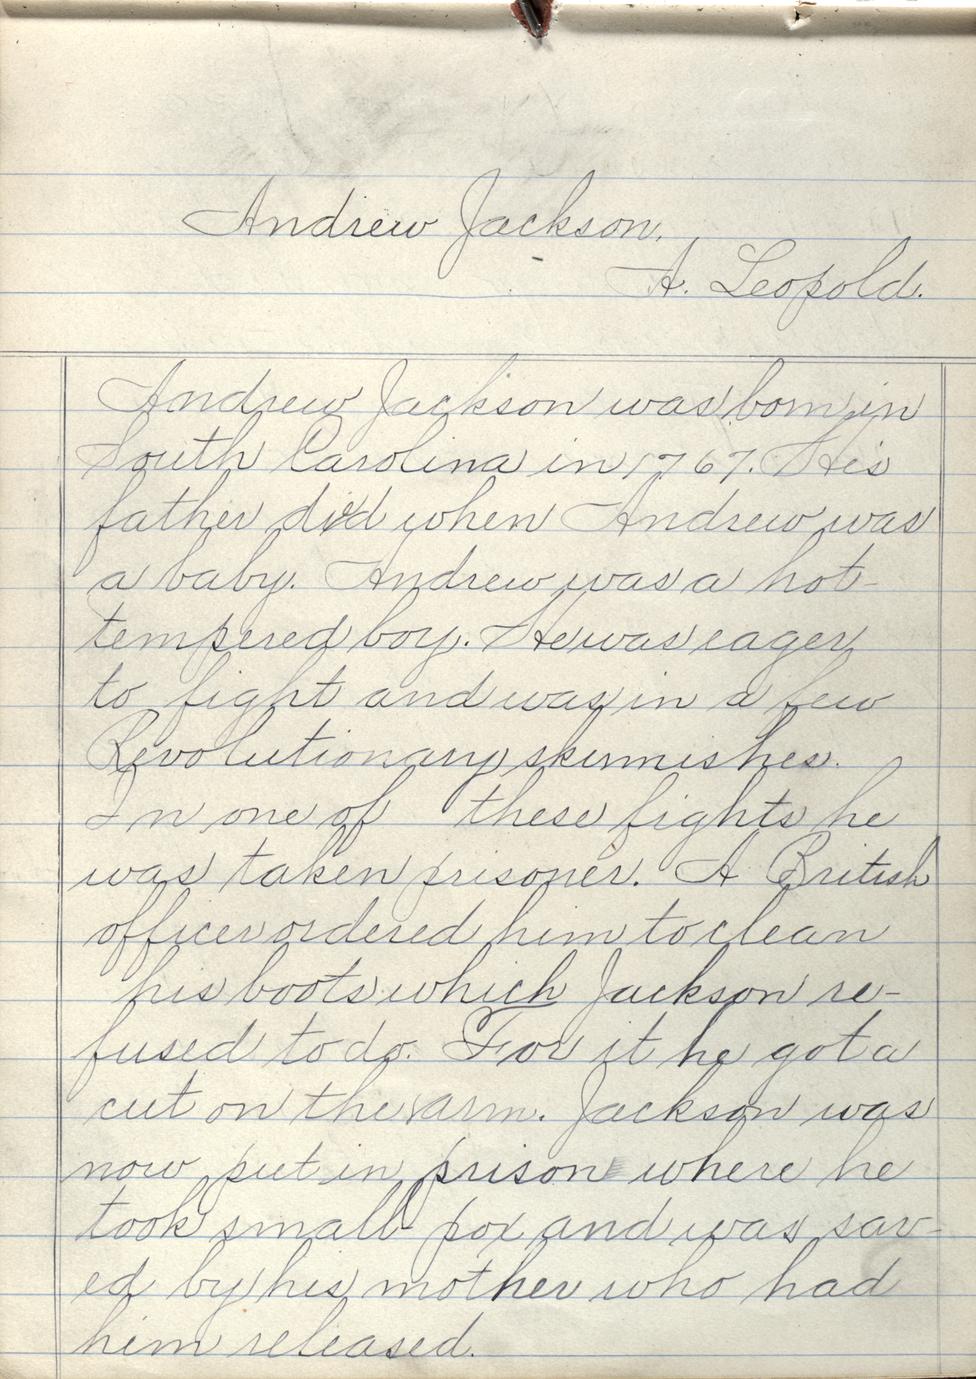 Andrew Jackson.
A. Leopold.
Andrew Jackson was born in
South Carolina in 1767. His
father died when Andrew was
a baby. Andrew was a hot-
tempered boy. He was eager
to fight and was in a few
Revolutionary skirmishes.
In one of these fights he
was taken prisoner. A British
officer ordered him to clean
his boots which Jackson re-
fused to do. For it he got a
cut on the arm. Jackson was
now put in prison where he
took small-pox and was sav-
ed by his mother who had
him released.